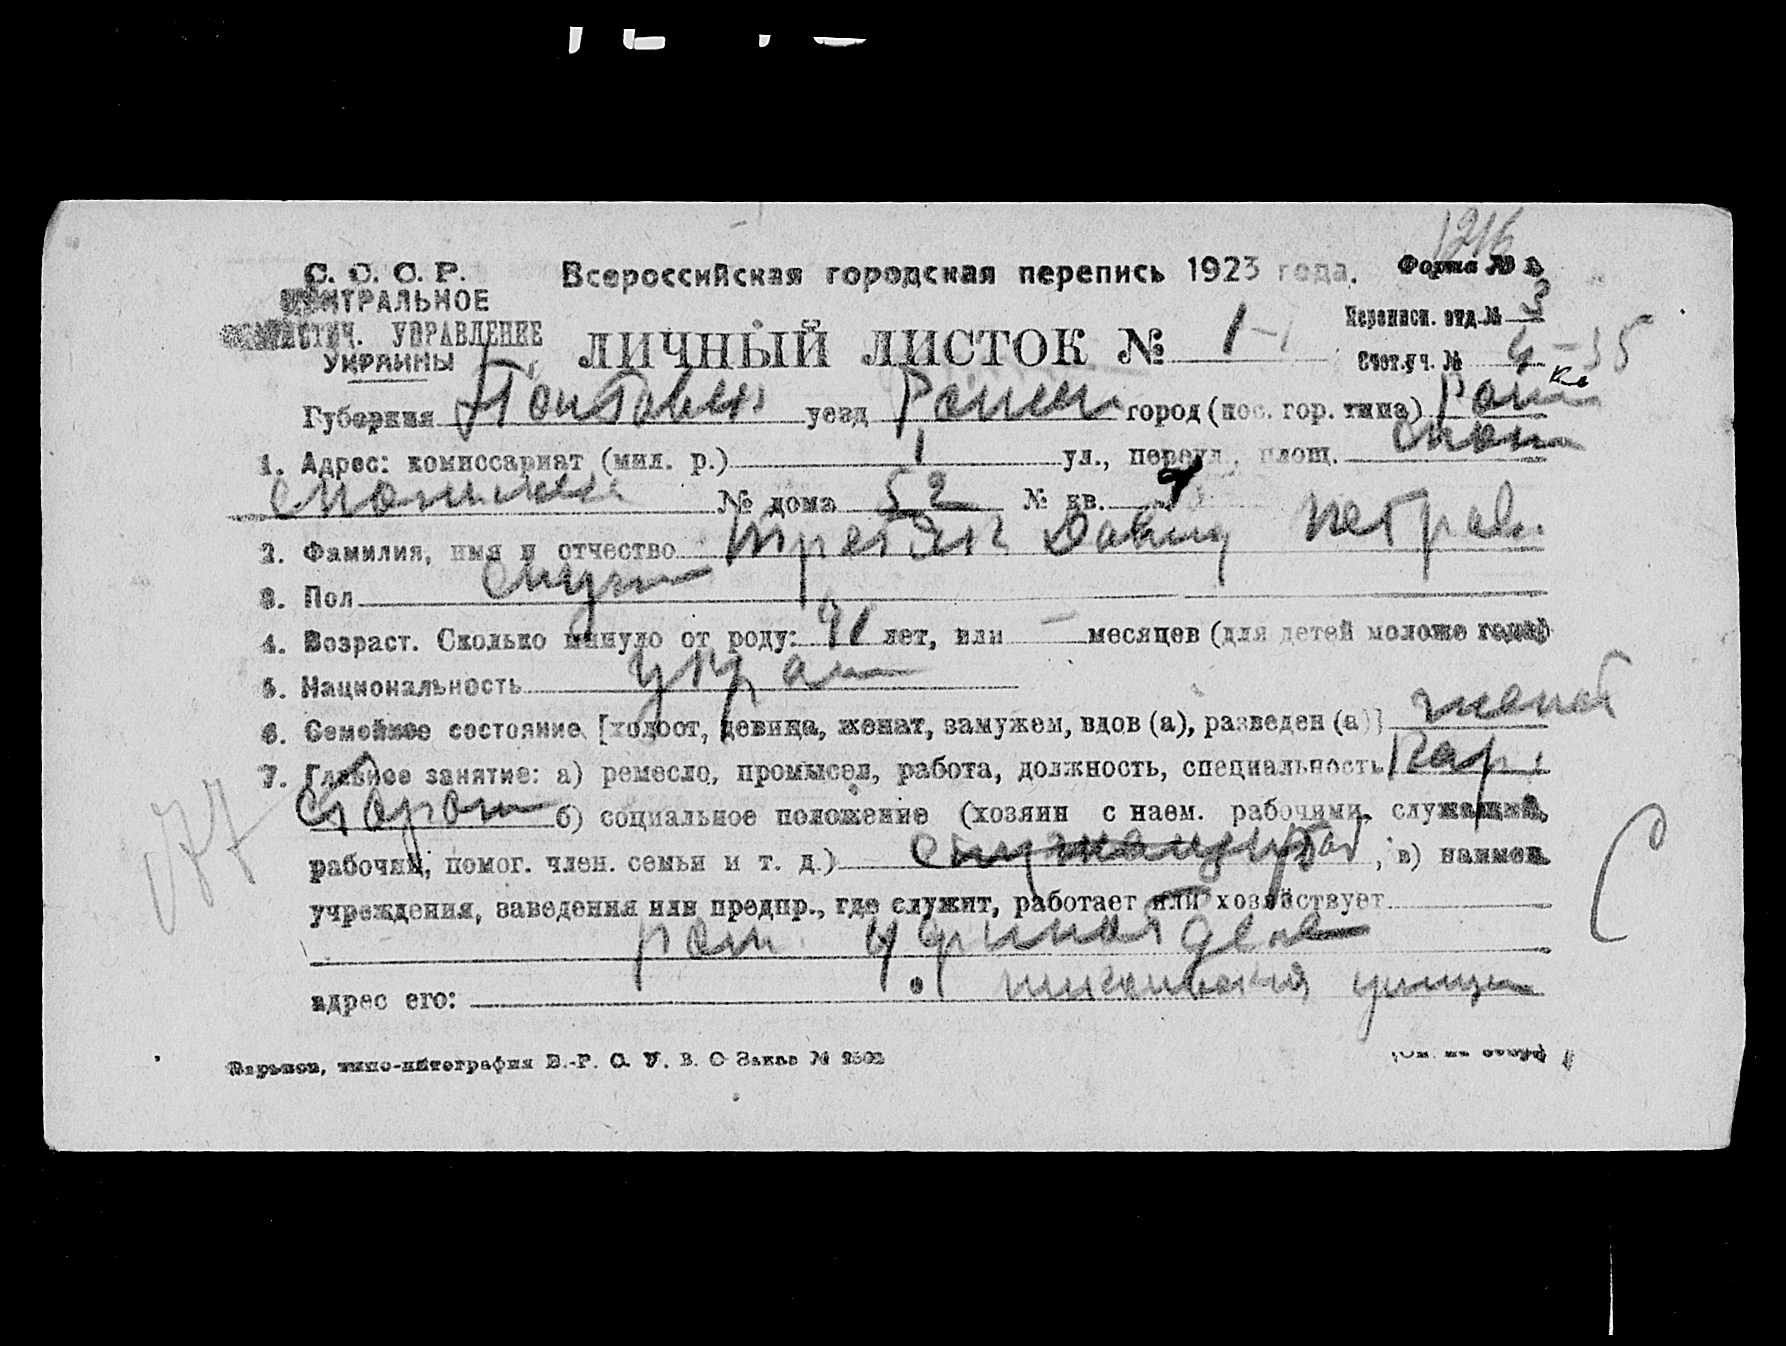 1216
С. С. С. Р. Всероссийская городская перепись 1923 года. Форма № 1
ЦЕНТРАЛЬНОЕ
СТАТИСТИЧ. УПРАВЛЕНИЕ
УКРАИНЫ
ЛИЧНЫЙ ЛИСТОК № 1
Переписн. отд. № 3
Счет.уч. № 4-35
Губерния Полтавск уезд Ромен город (пос. гор. типа) Ромн
1. Адрес: комиссариат (мил. р.) 1 ул., переул., площ.
№ дома 52 № кв.
2. Фамилия, имя и отчество Третяк Давид Петров.
3. Пол Муж
4. Возраст. Сколько минуло от роду: 41 лет, или — месяцев (для детей моложе года)
5. Национальность укра
6. Семейное состояние [холост, девица, женат, замужем, вдов (а), разведен (а)] женат
7. Главное занятие: а) ремесло, промысел, работа, должность, специальность Кар.
Сторож б) социальное положение (хозяин с наем. рабочими, служащий,
рабочий, помог. член. семьи и т. д.) служащ , в) наимен.
учреждения, заведения или предпр., где служит, работает или хозяйствует
ром.
адрес его: улица
77
С
Харьков, типо-литография В.-Р. С. У. В. О Заказ № 2502